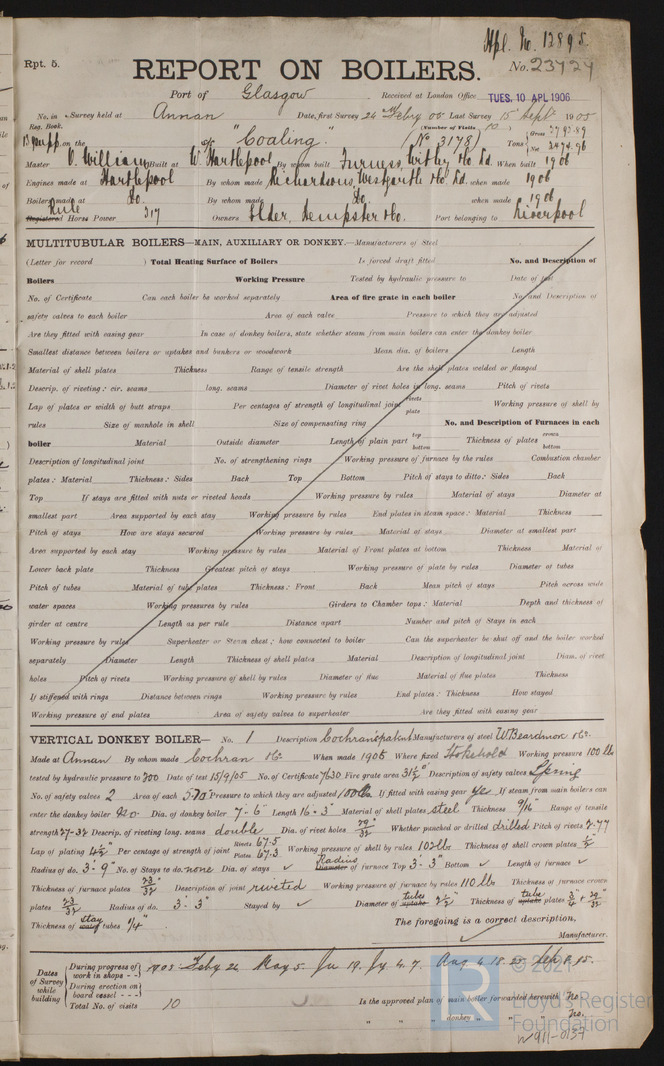 Apl. No. 12895.
Rpt. 5.
REPORT ON BOILERS.
No. 23724
Port of Glasgow
Received at London Office TUES. 10 APL 1906
No. in Reg. Book. Survey held at Annan Date, first Survey 24 Feby 05 Last Survey 15 Sept 1905
(Number of Visits 10)
on the "Coaling." (No 3178) Tons { Gross 3793.89 Net 2474.96
Master O. William Built at W. Hartlepool By whom built Furness, Withy & Co Ld. When built 1906
Engines made at Hartlepool By whom made Richardsons, Westgarth & Co Ld. when made 1906
Boilers made at Do. By whom made Do. when made 1906
Registered Rule Horse Power 317 Owners Elder, Dempster & Co. Port belonging to Liverpool
MULTITUBULAR BOILERS—MAIN, AUXILIARY OR DONKEY.—Manufacturers of Steel
(Letter for record ) Total Heating Surface of Boilers Is forced draft fitted No. and Description of
Boilers Working Pressure Tested by hydraulic pressure to Date of test
No. of Certificate Can each boiler be worked separately Area of fire grate in each boiler No. and Description of
safety valves to each boiler Area of each valve Pressure to which they are adjusted
Are they fitted with easing gear In case of donkey boilers, state whether steam from main boilers can enter the donkey boiler
Smallest distance between boilers or uptakes and bunkers or woodwork Mean dia. of boilers Length
Material of shell plates Thickness Range of tensile strength Are the shell plates welded or flanged
Descrip. of riveting: cir. seams long. seams Diameter of rivet holes in long. seams Pitch of rivets
Lap of plates or width of butt straps Per centages of strength of longitudinal joint rivets plate Working pressure of shell by
rules Size of manhole in shell Size of compensating ring No. and Description of Furnaces in each
boiler Material Outside diameter Length of plain part top bottom Thickness of plates crown bottom
Description of longitudinal joint No. of strengthening rings Working pressure of furnace by the rules Combustion chamber
plates: Material Thickness: Sides Back Top Bottom Pitch of stays to ditto: Sides Back
Top If stays are fitted with nuts or riveted heads Working pressure by rules Material of stays Diameter at
smallest part Area supported by each stay Working pressure by rules End plates in steam space: Material Thickness
Pitch of stays How are stays secured Working pressure by rules Material of stays Diameter at smallest part
Area supported by each stay Working pressure by rules Material of Front plates at bottom Thickness Material of
Lower back plate Thickness Greatest pitch of stays Working pressure of plate by rules Diameter of tubes
Pitch of tubes Material of tube plates Thickness: Front Back Mean pitch of stays Pitch across wide
water spaces Working pressures by rules Girders to Chamber tops: Material Depth and thickness of
girder at centre Length as per rule Distance apart Number and pitch of Stays in each
Working pressure by rules Superheater or Steam chest; how connected to boiler Can the superheater be shut off and the boiler worked
separately Diameter Length Thickness of shell plates Material Description of longitudinal joint Diam. of rivet
holes Pitch of rivets Working pressure of shell by rules Diameter of flue Material of flue plates Thickness
If stiffened with rings Distance between rings Working pressure by rules End plates: Thickness How stayed
Working pressure of end plates Area of safety valves to superheater Are they fitted with easing gear
VERTICAL DONKEY BOILER— No. 1 Description Cochran's patent Manufacturers of steel W. Beardmore & Co.
Made at Annan By whom made Cochran & Co. When made 1905 Where fixed Stokehold Working pressure 100 lb
tested by hydraulic pressure to 200 Date of test 15/9/05 No. of Certificate 7630 Fire grate area 31½ □' Description of safety valves Spring
No. of safety valves 2 Area of each 5.70 Pressure to which they are adjusted 100 lb If fitted with easing gear yes If steam from main boilers can
enter the donkey boiler no Dia. of donkey boiler 7-6 Length 16-3" Material of shell plates steel Thickness 9/16 Range of tensile
strength 27-32 Descrip. of riveting long. seams double Dia. of rivet holes 29/32 Whether punched or drilled drilled Pitch of rivets 2.77
Lap of plating 4½ Per centage of strength of joint Rivets 67.5 Plates 67.3 Working pressure of shell by rules 102 lb Thickness of shell crown plates
Radius of do. 3'-9" No. of Stays to do. none Dia. of stays ✓ Radius Diameter of furnace Top 3'-3" Bottom ✓ Length of furnace ✓
Thickness of furnace plates 23/32 Description of joint riveted Working pressure of furnace by rules 110 lb Thickness of furnace crown
plates 23/32 Radius of do. 3'-3" Stayed by ✓ Diameter of uptake tubes 2½ Thickness of uptake tube plates 3/4 + 29/32
Thickness of stay tubes 1/4"
The foregoing is a correct description,
Manufacturer.
Dates of Survey while building
During progress of work in shops - - 1905 Feby 24 May 5. Ju 19. Jy 4. 7. Aug 4. 18. 25. Sep 8. 15.
During erection on board vessel - - -
Total No. of visits 10
Is the approved plan of main boiler forwarded herewith No
" " " donkey " " " No.
© 2021
Lloyd's Register
Foundation
W911-0137